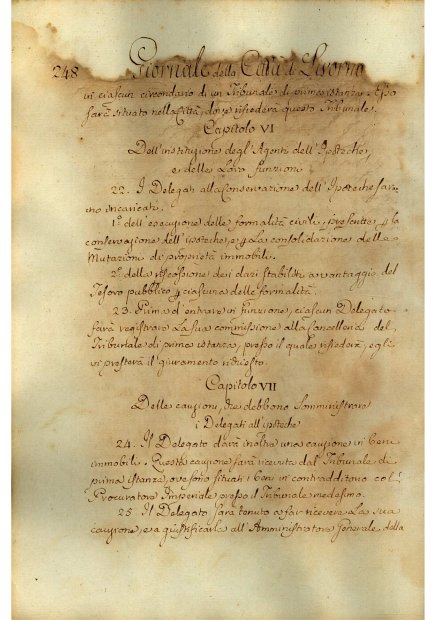 248 Giornale della Città di Livorno
in ciascun circondario di un Tribunale di prima istanza. Esso
sarà situato nella Città, dove risiederà questo Tribunale.
Capitolo VI
Dell'instituzione degl'Agenti dell'Ipoteche,
e delle Loro funzioni
22. I Delegati alla Conservazione dell'Ipoteche sara-
no incaricati.
1º dell'esecuzione delle formalità civili, prescritte p la
conservazione dell'ipoteche, e p La consolidazione delle
Mutazioni di proprietà immobili.
2º delle riscossione dei dazi stabiliti a vantaggio del
Tesoro pubblico p ciascuna delle formalità.
23. Prima d'entrare in funzione, ciascun Delegato
farà registrare La sua commissione alla Cancelleria del
Tribunale di prima istanza, presso il quale risiederà, egli
vi presterà il giuramento richiesto.
Capitolo VII
Delle cauzioni, che debbono Somministrare
i Delegati all'ipoteche
24. Il Delegato darà inoltre una cauzione in beni
immobili. Questa cauzione sarà ricevuta dal Tribunale di
prima istanza, ove sono situati i beni in contradditorio col
Procuratore Imperiale presso il Tribunale medesimo.
25. Il Delegato sarà tenuto a far ricevere La sua
cauzione, e a giustificarla all'Amministratore Generale della